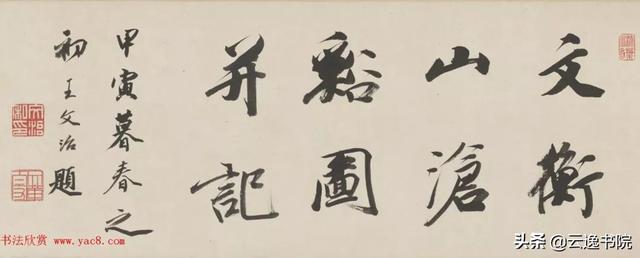 文衡
山滄
谿圖
并記
甲寅暮春之
初王文治題
书法欣赏
www.yac8.com
头条 @云逸书院